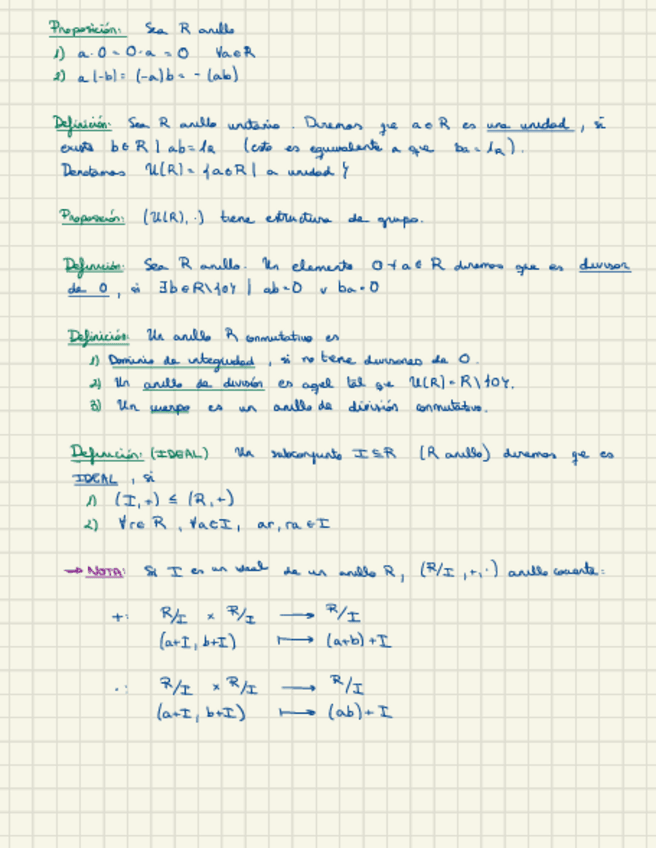 Proposición: Sea R anillo
1) a·0 = 0·a = 0 ∀a∈R
2) a(-b) = (-a)b = -(ab)
Definición: Sea R anillo unitario. Diremos que a∈R es una unidad, si
existe b∈R | ab=1_R (esto es equivalente a que ba=1_R).
Denotamos U(R) = {a∈R | a unidad}
Proposición: (U(R), ·) tiene estructura de grupo.
Definición: Sea R anillo. Un elemento 0≠a∈R diremos que es divisor
de 0, si ∃b∈R\{0} | ab=0 ∨ ba=0
Definición: Un anillo R conmutativo es
1) Dominio de integridad, si no tiene divisores de 0.
2) Un anillo de división es aquel tal que U(R)=R\{0}.
3) Un cuerpo es un anillo de división conmutativo.
Definición: (IDEAL) Un subconjunto I⊆R (R anillo) diremos qe es
IDEAL, si
1) (I,+) ≤ (R,+)
2) ∀r∈R, ∀a∈I, ar, ra∈I
→ NOTA: Si I es un ideal de un anillo R, (R/I, +, ·) anillo cociente:
+: R/I × R/I ⟶ R/I
(a+I, b+I) ⟼ (a+b)+I
·: R/I × R/I ⟶ R/I
(a+I, b+I) ⟼ (ab)+I